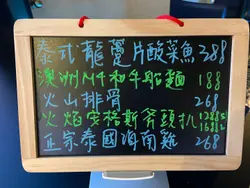 泰式龍躉片酸菜魚 288
澳洲M4和牛船麵 188
火山排骨 268
火焰安格斯斧頭扒
正宗泰國海南雞 268